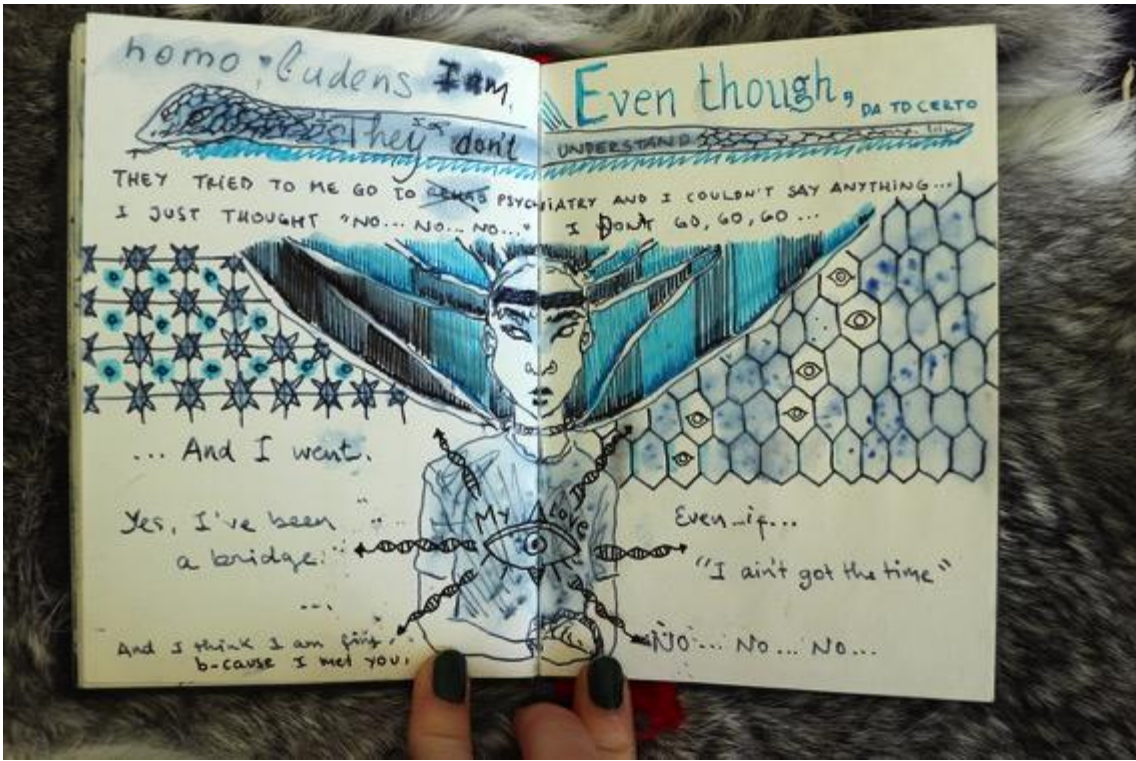 homo ludens I am.
Even though, DA TD CERTO
they don't UNDERSTAND
THEY TRIED TO ME GO TO PSYCHIATRY AND I COULDN'T SAY ANYTHING...
I JUST THOUGHT "NO... NO... NO..." I DON'T GO, GO, GO...
... And I went.
Yes, I've been
a bridge.
...
And I think I am
b-cause I met you.
My Love
Even if...
"I ain't got the time"
NO... NO... NO...